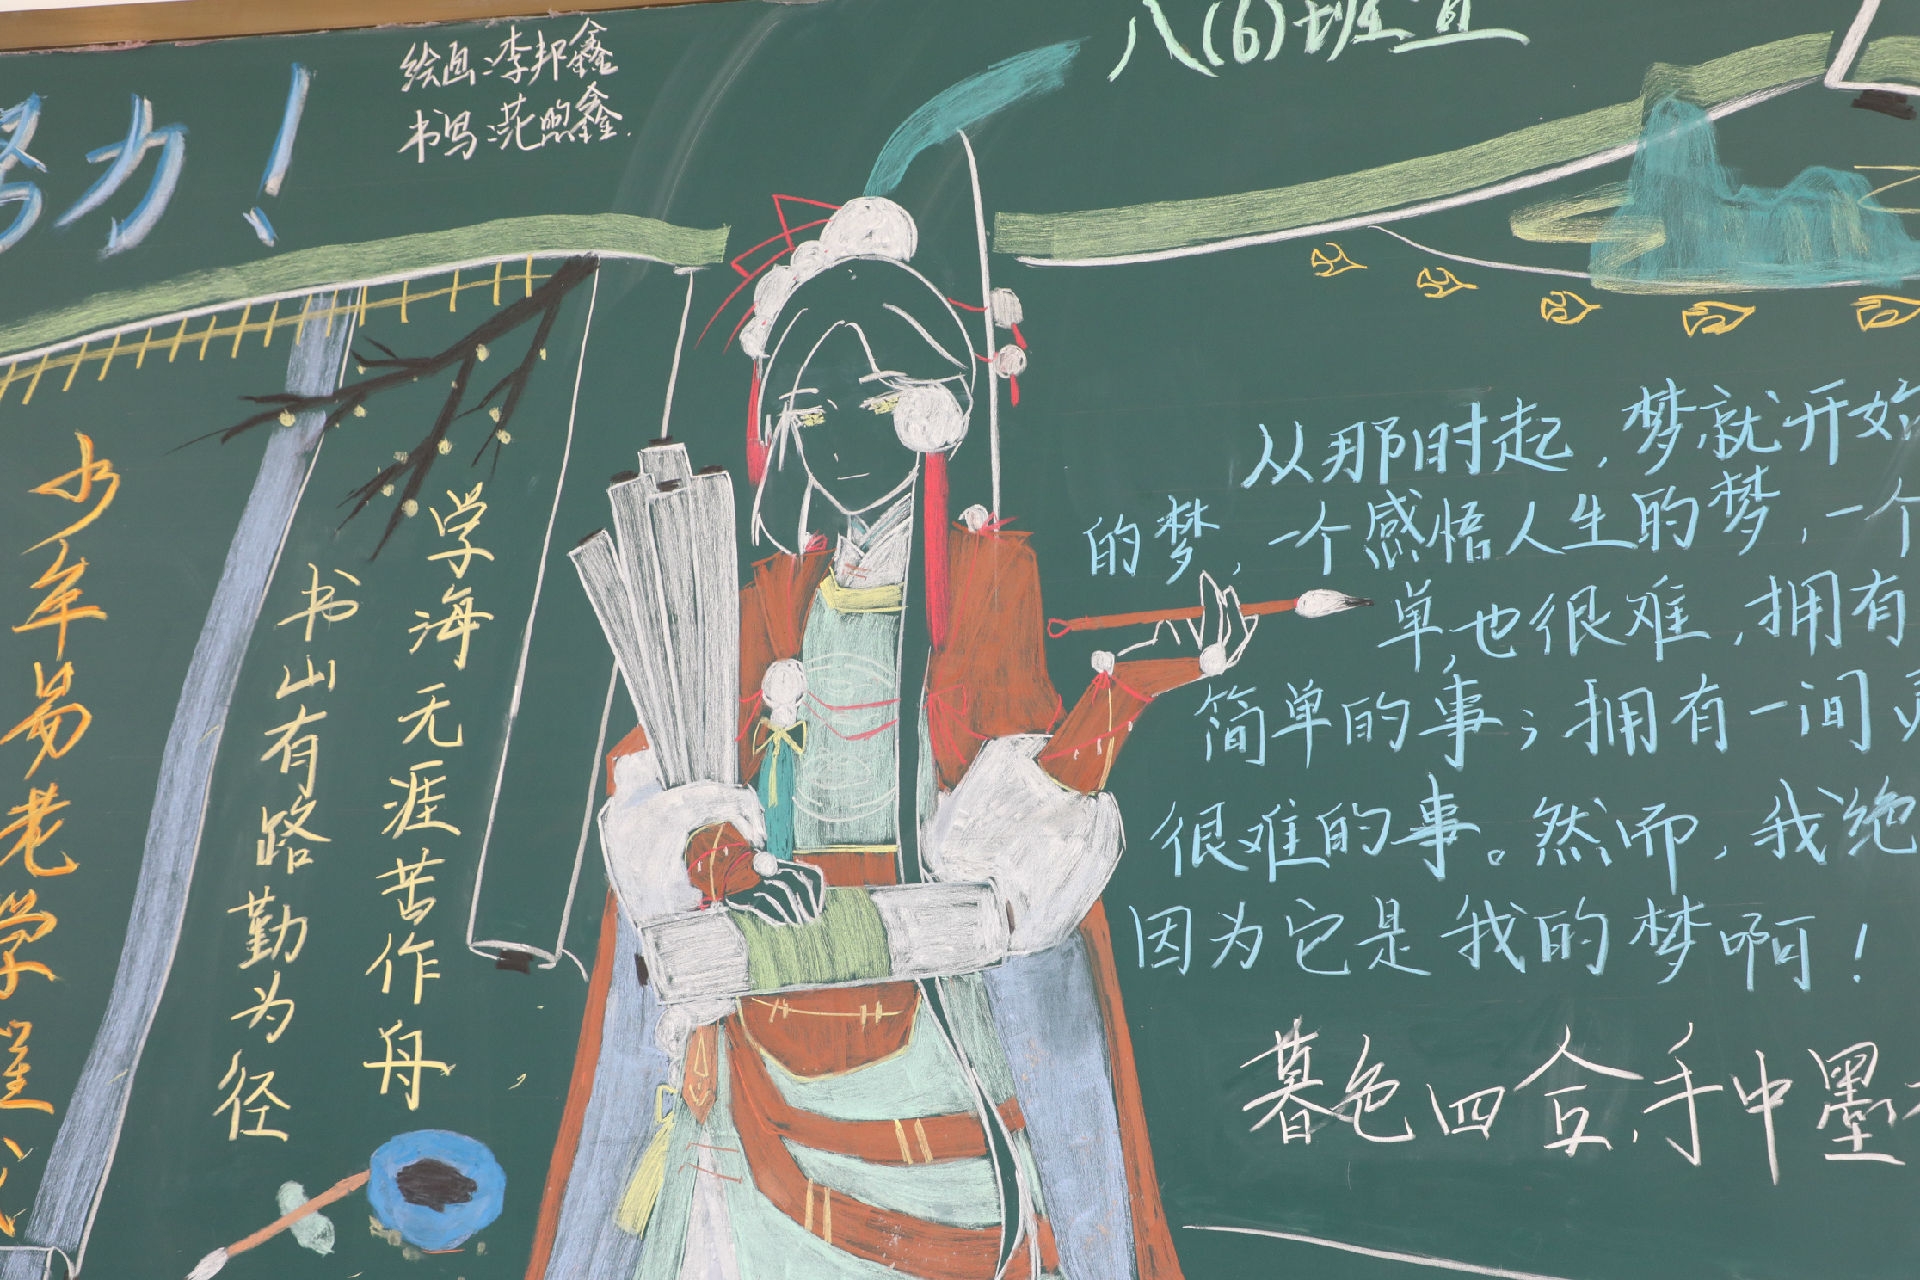 努力！
绘画：李邦鑫
书写：范照鑫.
八(6)班宣
少年易老学难成
书山有路勤为径
学海无涯苦作舟
从那时起，梦就开始
的梦，一个感悟人生的梦，一个
单，也很难，拥有
简单的事；拥有一间
很难的事。然而，我绝
因为它是我的梦啊！
暮色四合，手中墨